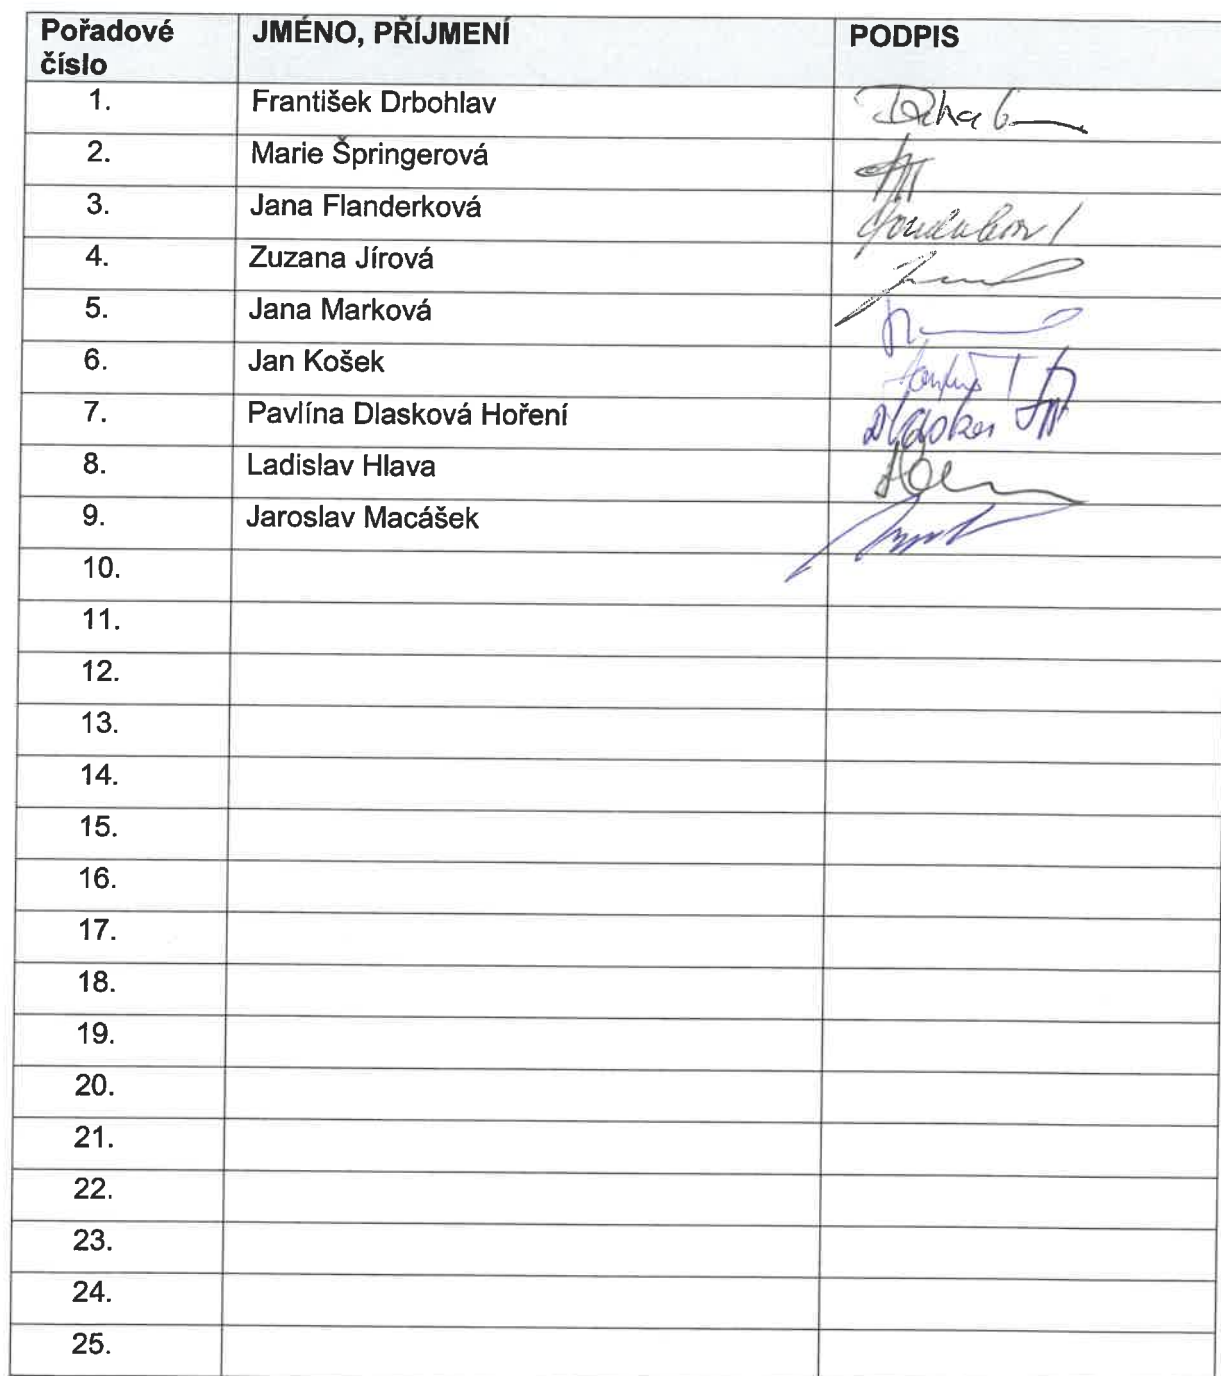 Pořadové číslo JMÉNO, PŘÍJMENÍ PODPIS
1. František Drbohlav
2. Marie Špringerová
3. Jana Flanderková
4. Zuzana Jírová
5. Jana Marková
6. Jan Košek
7. Pavlína Dlasková Hoření
8. Ladislav Hlava
9. Jaroslav Macášek
10.
11.
12.
13.
14.
15.
16.
17.
18.
19.
20.
21.
22.
23.
24.
25.